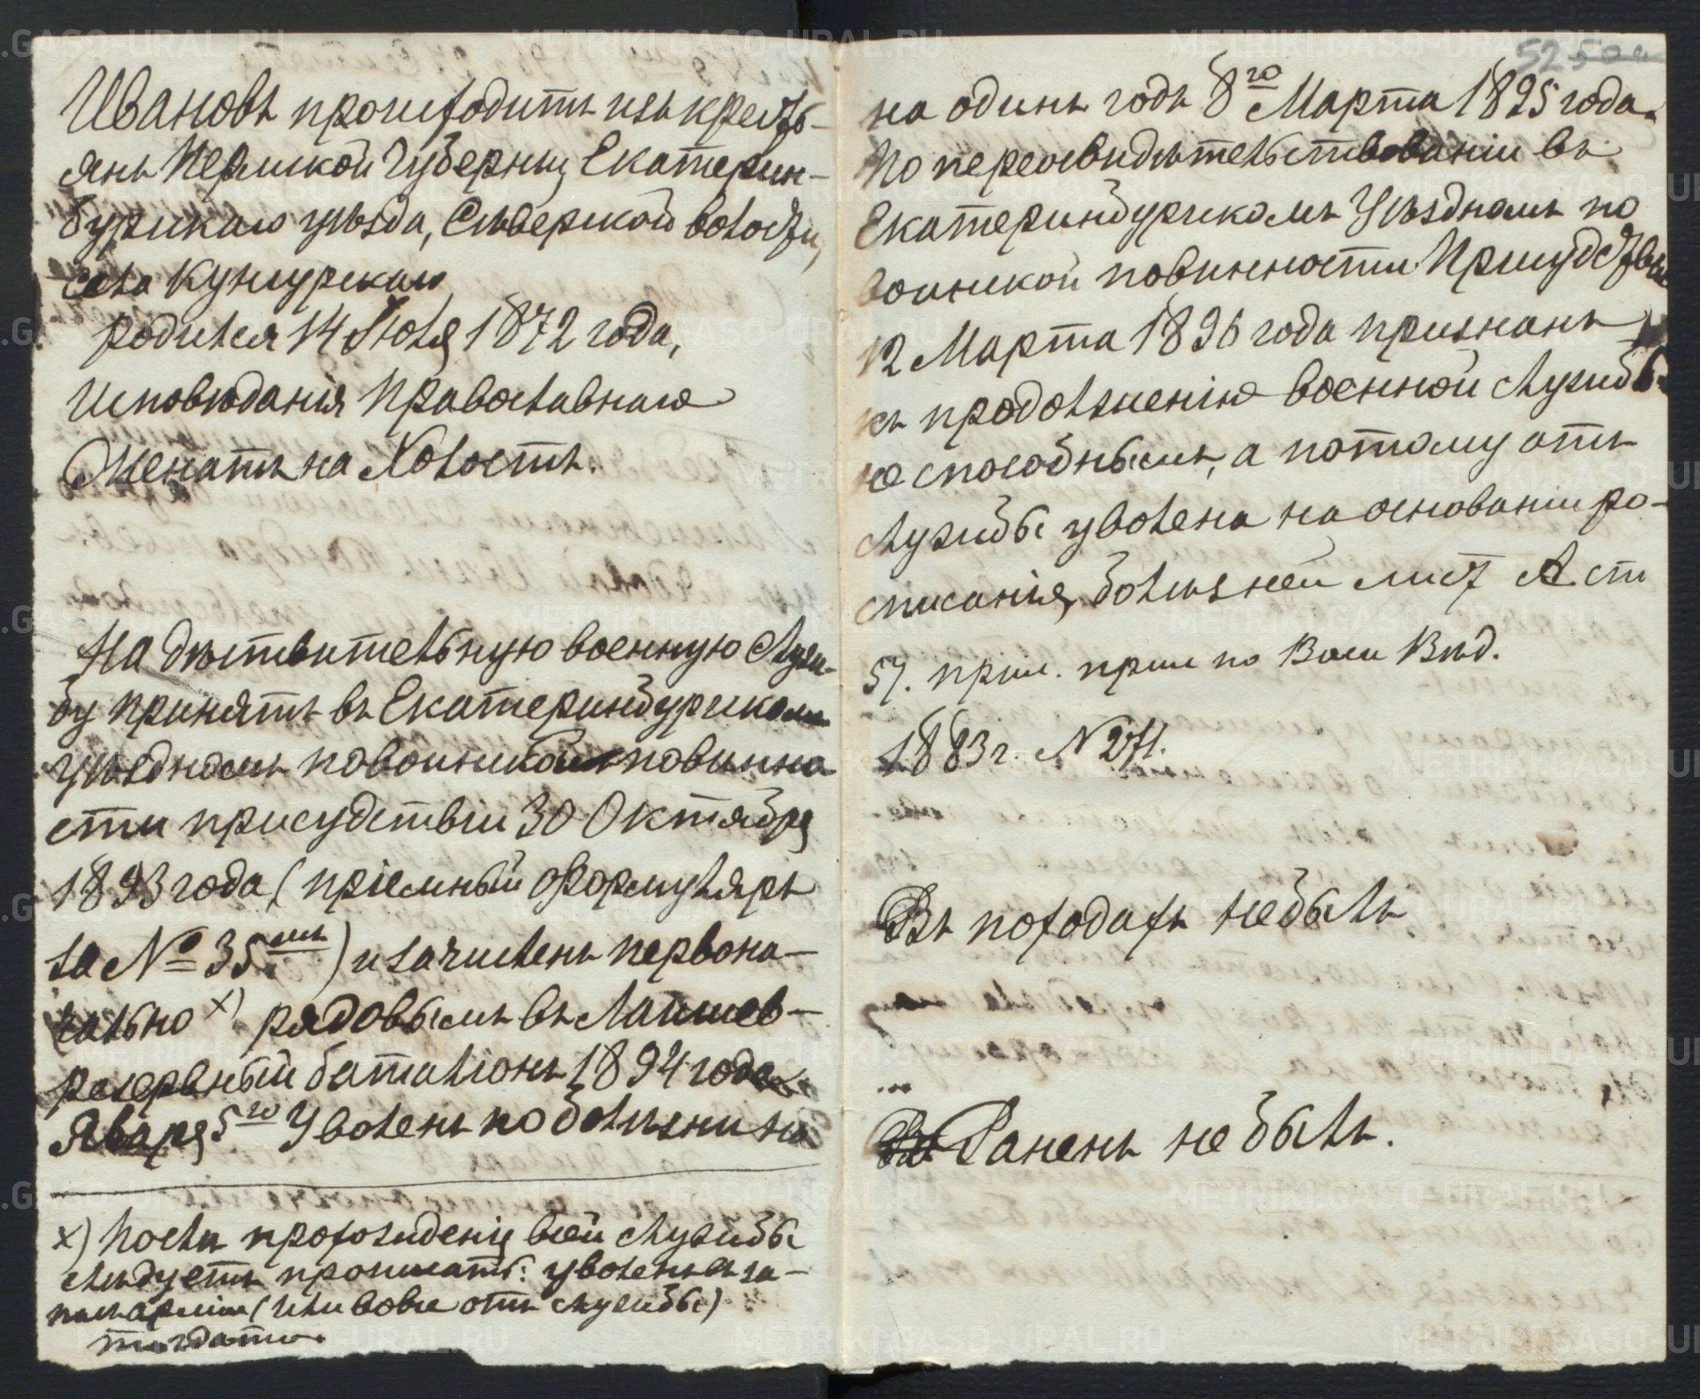 52
Ивановъ происходитъ изъ кресть-
янъ Пермской Губерніи, Екатерин-
бургскаго уѣзда, Сѣверской волости,
села Кунгурскаго
родился 14 Іюля 1872 года,
Исповѣданія Православнаго
Женатъ на Холостъ.
На дѣствительную военную служ-
бу принятъ въ Екатеринбургскомъ
уѣздномъ повоинской повинно
сти присудствіи 30 Октября
1893 года (пріемный формуляръ
за № 35мъ) и зачисленъ первона-
чально х) рядовымъ въ Лаишев-
резервный баталіонъ 1894 года
Яваря 5го Уволенъ по болѣзни на
х) Послѣ прохожденія всей службы
слѣдуетъ прописать: уволенъ въ за-
пасъ арміи (или вовсе отъ службы)
тогдато.
на одинъ годъ 8го Марта 1895 года.
По переосвидѣтельствованіи въ
Екатеринбургскомъ Уѣздномъ по
воинской повинности Присудствіи
12 Марта 1896 года признанъ
къ продолженію военной службы
не способнымъ, а потому отъ
службы уволенъ на основаніи ро-
списанія, болѣзней лист А ст
57. прик. прик по Воен Вѣд.
1883 г. N 271.
Въ походахъ небылъ
Раненъ не былъ.